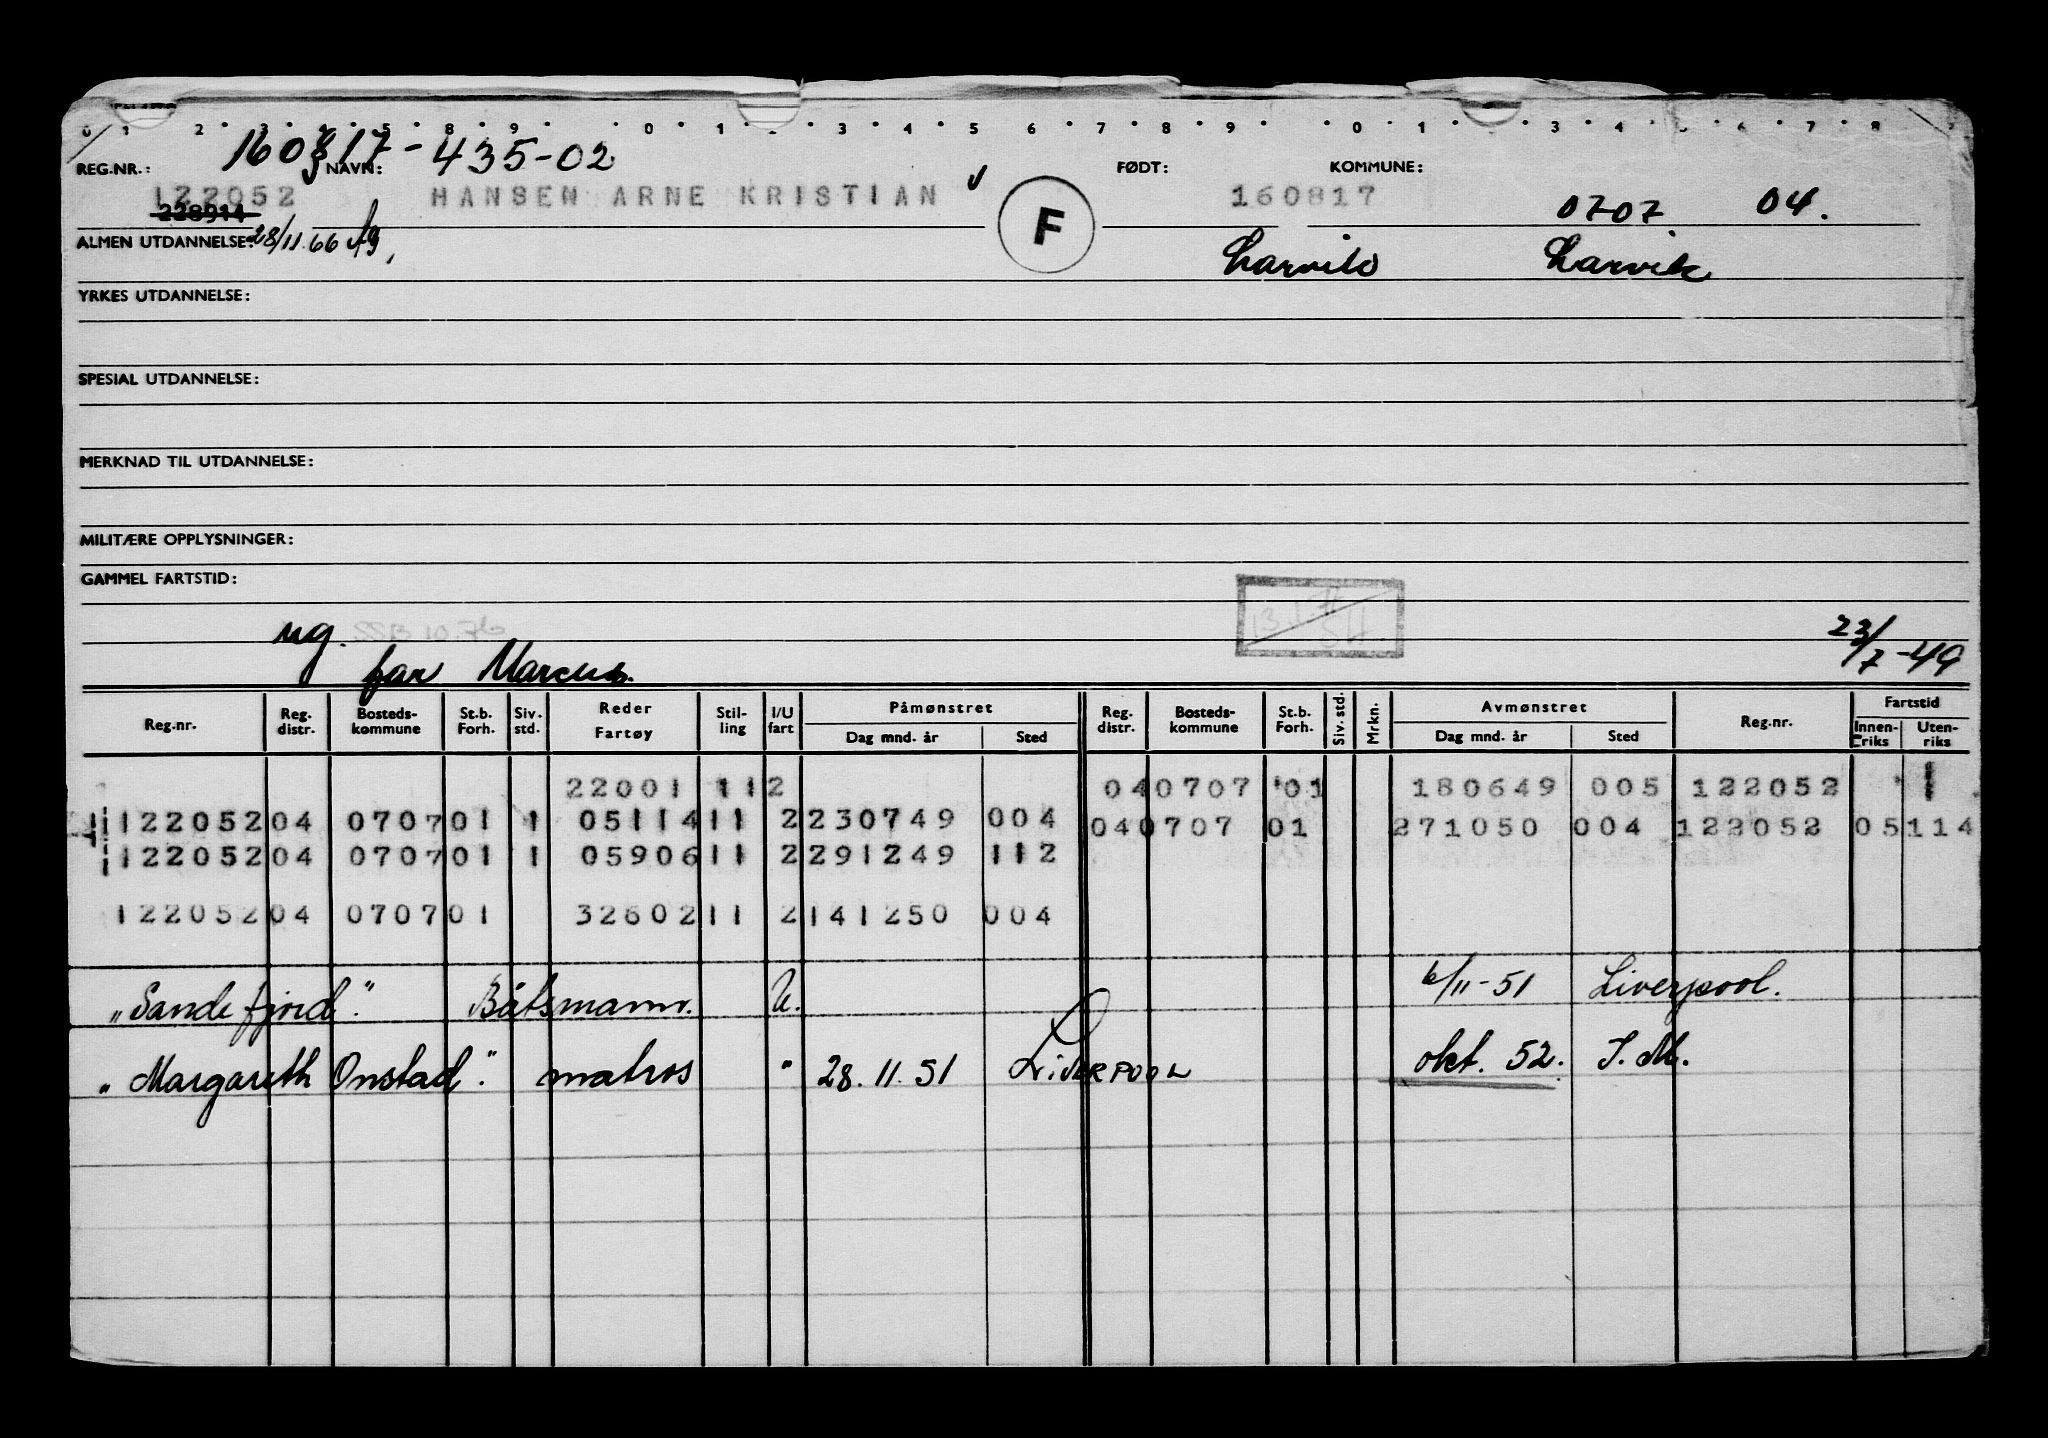 0 1 2 3 4 5 8 9 0 1 3 4 5 6 7 8 9 0 1 3 4 5 6 7 8
160817-435-02
REG.NR.: NAVN: FØDT: KOMMUNE:
122052 HANSEN ARNE KRISTIAN 160817
228914 F 0707 04.
ALMEN UTDANNELSE: 28/11.66 Larvik Larvik
YRKES UTDANNELSE:
SPESIAL UTDANNELSE:
MERKNAD TIL UTDANNELSE:
MILITÆRE OPPLYSNINGER:
GAMMEL FARTSTID:
ug. SSB 10.76 23/7-49
far Marcus.
Reg.nr. Reg. distr. Bosteds- kommune St.b. Forh. Siv. std. Reder Fartøy Stil- ling I/U fart Påmønstret Dag mnd. år Sted Reg. distr. Bosteds- kommune St.b. Forh. Siv. std. Mrkn. Avmønstret Dag mnd. år Sted Reg.nr. Fartstid Innen- riks Uten- riks
22001 11 2 04 0707 01 180649 005 122052 1
122052 04 0707 01 1 05114 11 2 230749 004 04 0707 01 271050 004 122052 05 114
122052 04 0707 01 1 05906 11 2 291249 112
122052 04 0707 01 32602 11 2 141250 004
"Sandefjord". Båtsmann. U. 6/11-51 Liverpool.
"Margareth Onstad". matros " 28.11.51 LiverPOOL okt. 52. I.M.